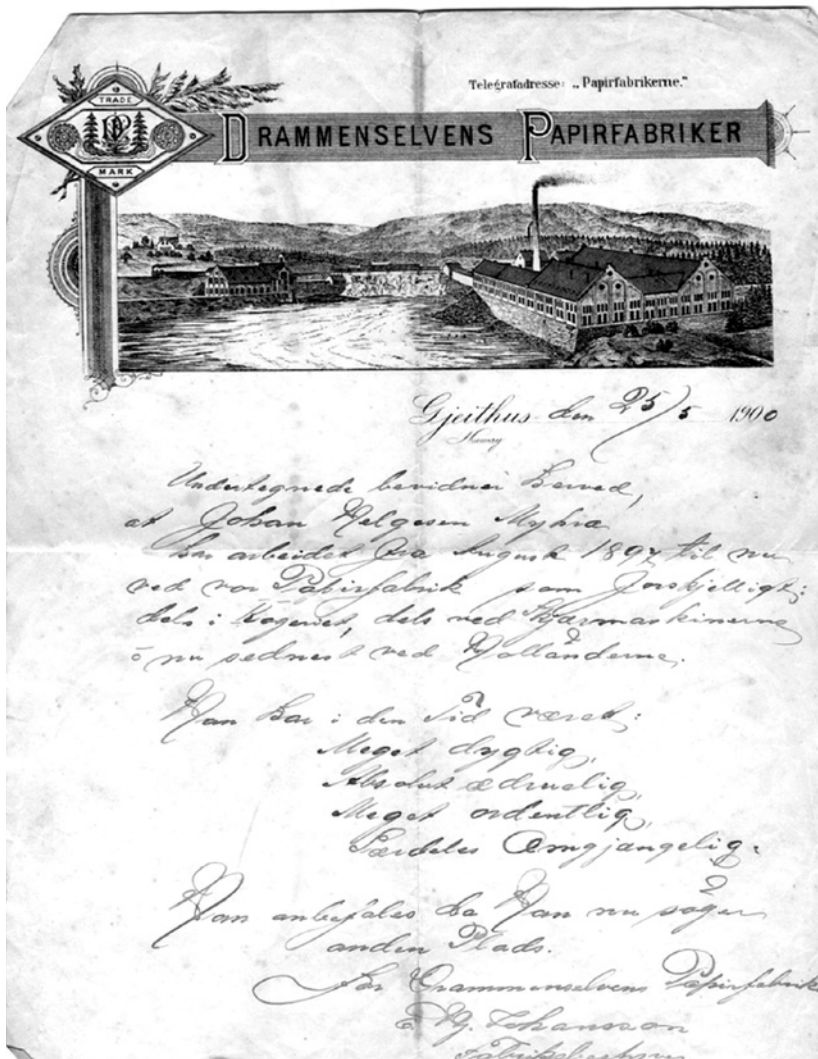 Telegrafadresse: „Papirfabrikerne.”
TRADE
DP
MARK
DRAMMENSELVENS PAPIRFABRIKER
Gjeithus den 25/5 1900
Undertegnede bevidner herved,
at Johan Helgesen Myhra
har arbeidet fra August 1897 til nu
ved vor Papirfabrik som forskjelligt:
dels i Kogeriet, dels ved
nu sednest ved Hollænderne.
Han har i den Tid været:
Meget dygtig,
Absolut ædruelig,
Meget ordentlig,
Særdeles Omgjængelig.
Han anbefales da Han nu søger
anden Plads.
For Drammenselvens Papirfabrik
Johansson